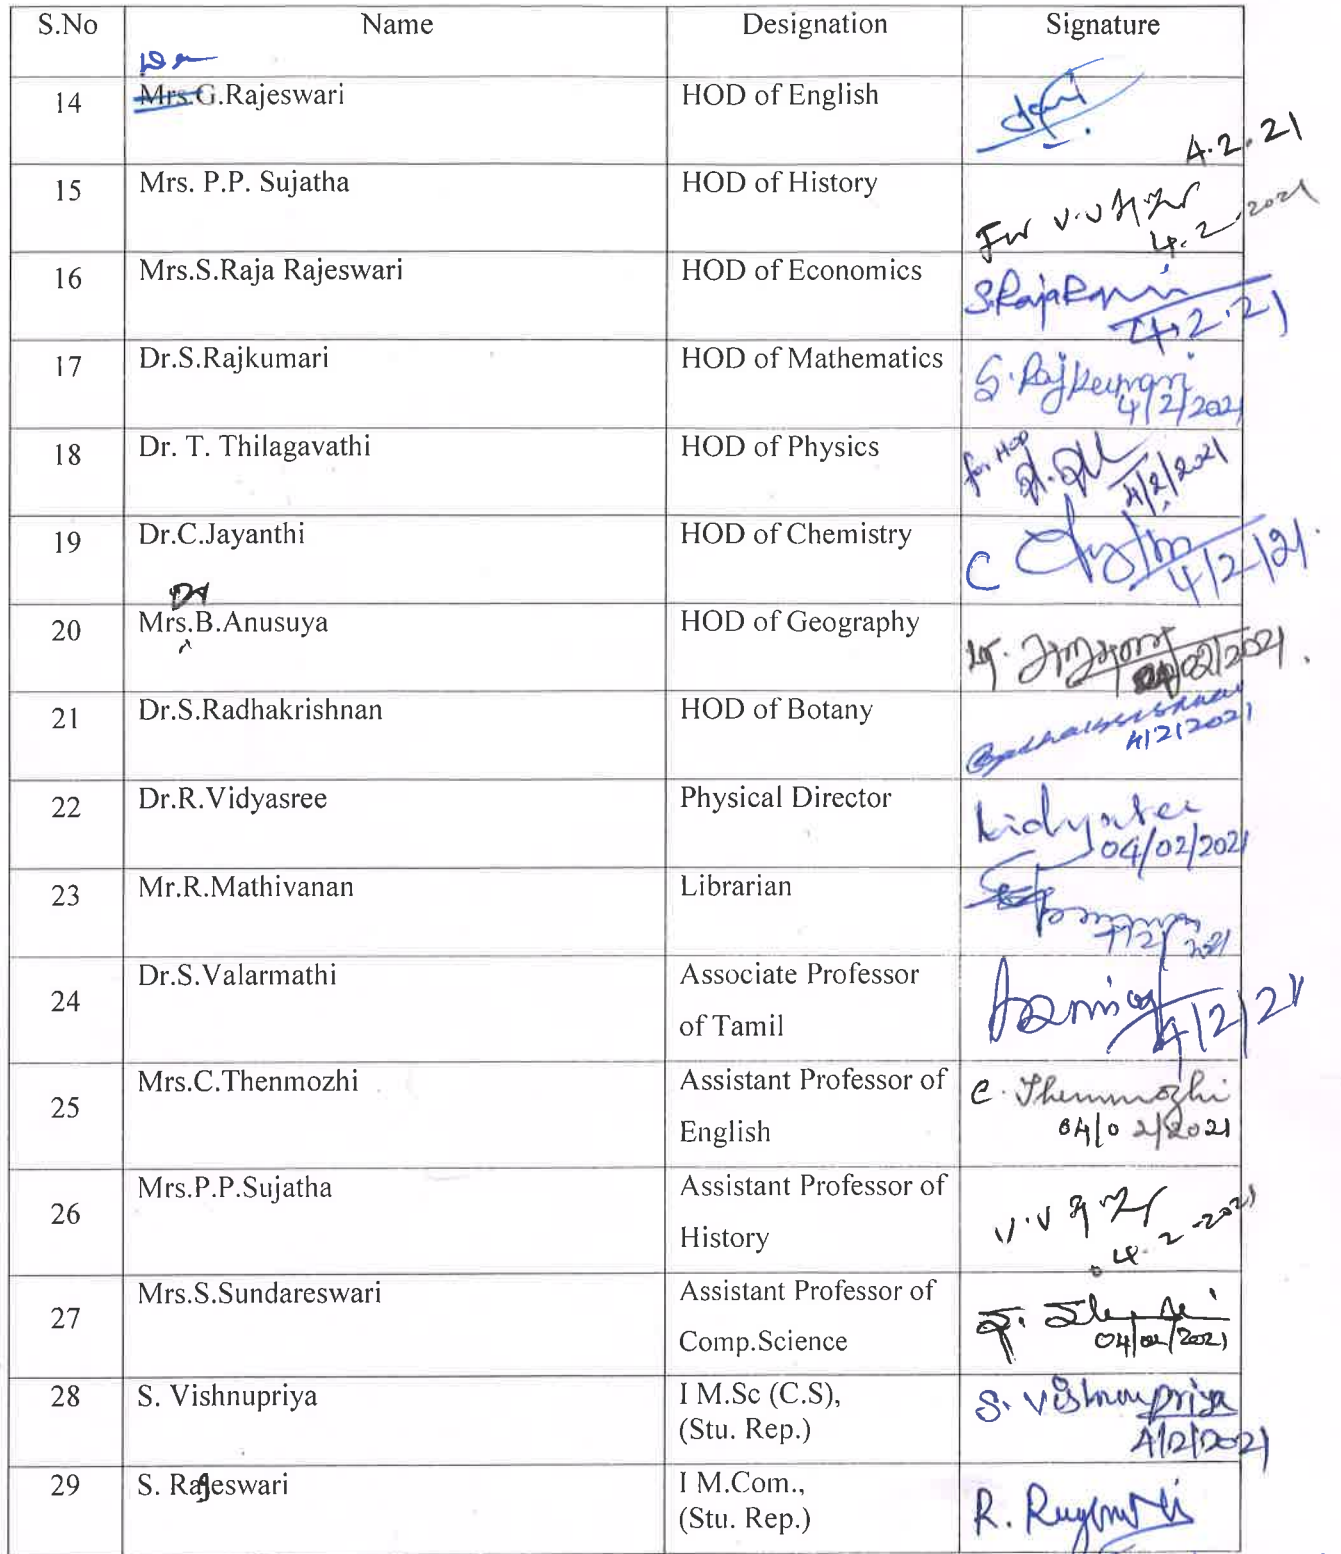 S.No Name Designation Signature
Dr
14 Mrs.G.Rajeswari HOD of English
4.2.21
15 Mrs. P.P. Sujatha HOD of History
For
4.2.2021
16 Mrs.S.Raja Rajeswari HOD of Economics
4.2.21
17 Dr.S.Rajkumari HOD of Mathematics S. Rajkumari
4/2/2021
18 Dr. T. Thilagavathi HOD of Physics for HOD
4/2/2021
19 Dr.C.Jayanthi HOD of Chemistry C
4/2/21.
Dr
20 Mrs.B.Anusuya HOD of Geography
04/02/2021.
21 Dr.S.Radhakrishnan HOD of Botany Radhakrishnan
4/2/2021
22 Dr.R.Vidyasree Physical Director Vidyasree
04/02/2021
23 Mr.R.Mathivanan Librarian
4/2/2021
24 Dr.S.Valarmathi Associate Professor
of Tamil
4/2/21
25 Mrs.C.Thenmozhi Assistant Professor of C. Thenmozhi
English 04/02/2021
26 Mrs.P.P.Sujatha Assistant Professor of
History 4.2.2021
27 Mrs.S.Sundareswari Assistant Professor of
Comp.Science 04/02/2021
28 S. Vishnupriya I M.Sc (C.S), S. Vishnupriya
(Stu. Rep.) 4/2/2021
29 S. Rajeswari I M.Com.,
(Stu. Rep.) R.